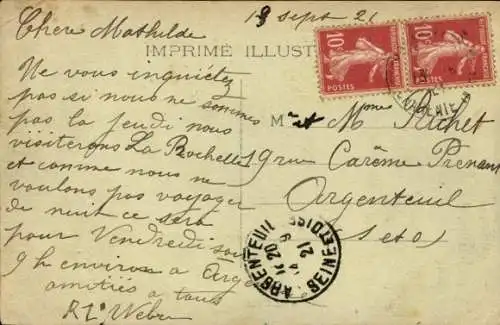 Chere Mathilde
13 sept 21
IMPRIMÉ ILLUST
Ne vous inquiétez
pas si nous ne sommes
pas la jeudi nous
visiterons La Rochelle
et comme nous ne
voulons pas voyager
de nuit ce sera
pour Vendredi soir
9 h environ a Arg
amitiés a tous
Weber
Mr et Mme Richet
19 rue Carême Prenant
Argenteuil
(S et O)
10c
POSTES
10c
POSTES
ARGENTEUIL
SEINE ET OISE